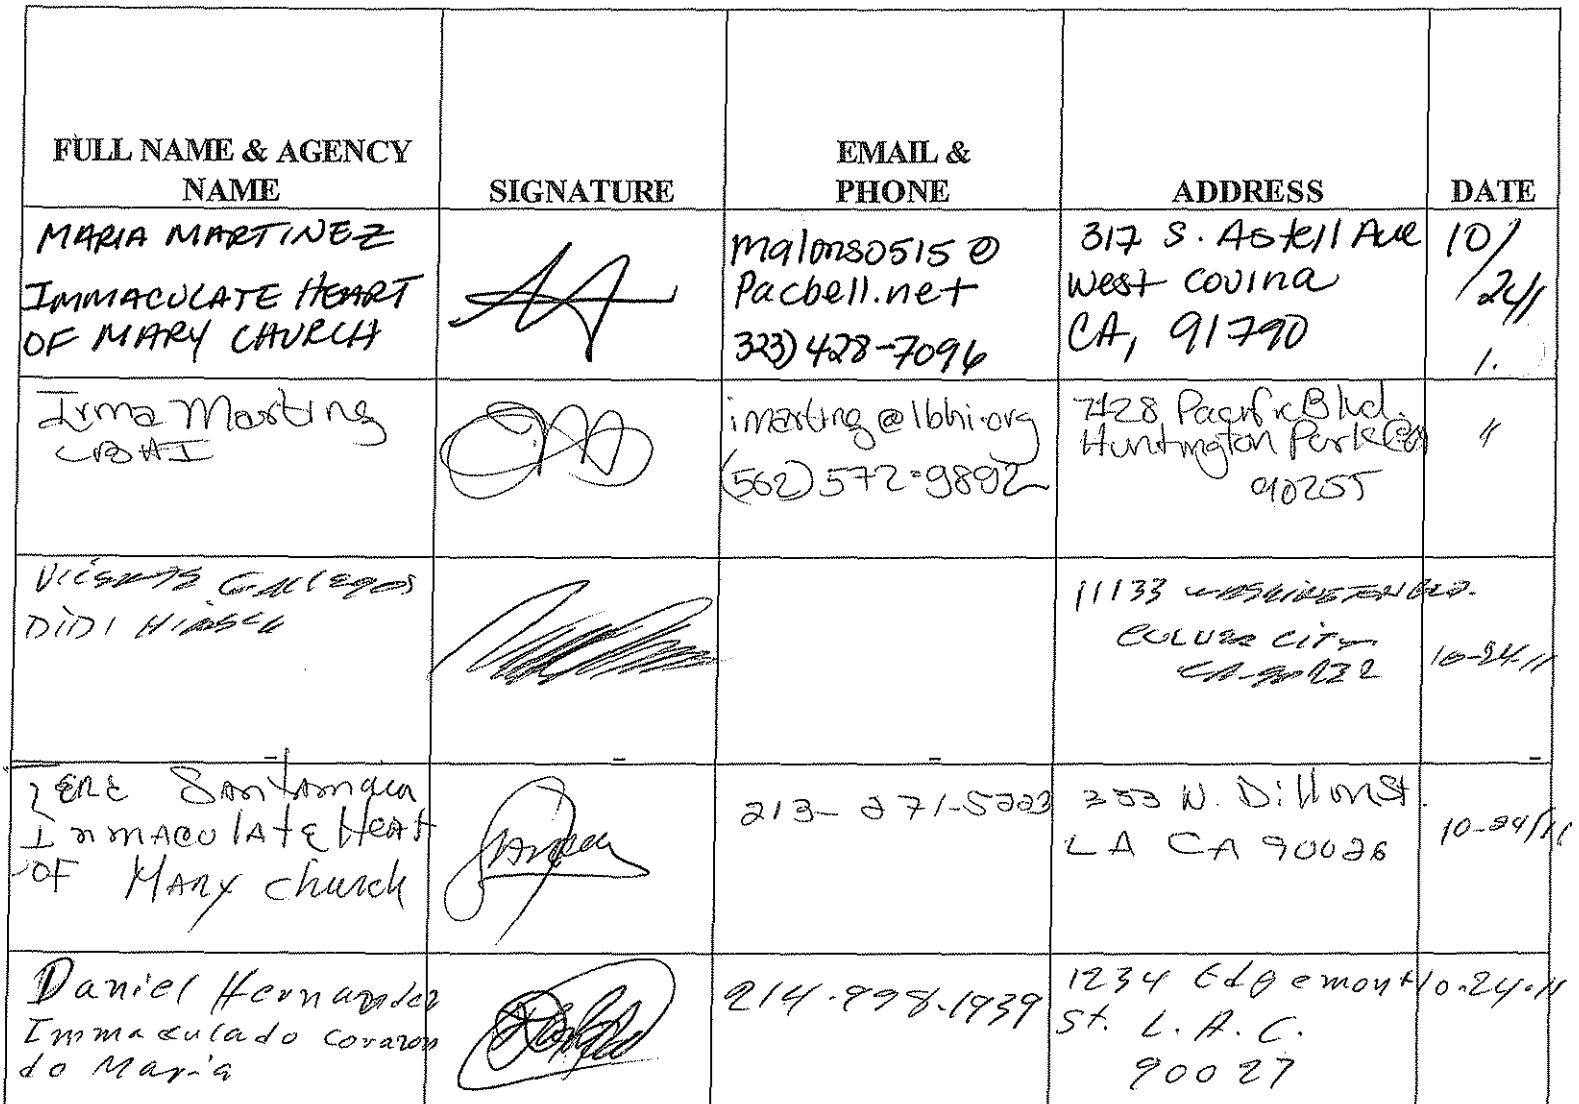 FULL NAME & AGENCY
NAME
SIGNATURE
EMAIL &
PHONE
ADDRESS
DATE
MARIA MARTINEZ
IMMACULATE HEART
OF MARY CHURCH
malonso515@
Pacbell.net
323) 428-7096
317 S. Astell Ave
West Covina
CA, 91790
10/
24/
1.
Irma Martinez
imartinez@lbhi.org
(562) 572-9892
7128 Pacific Blvd.
Huntington Park Ca
90255
"
Vicente Gallegos
DiDi Hirsch
11133 WASHINGTON BLD.
CULVER CiTy
CA-90232
10-24-11
TERE Santamaria
Immaculate Heart
OF MARY church
213-271-5223
253 N. Dillon St.
LA CA 90026
10-24/11
Daniel Hernandez
Immaculado Corazon
do Maria
214-998-1939
1234 Edgemont
St. L.A.C.
90027
10-24-11